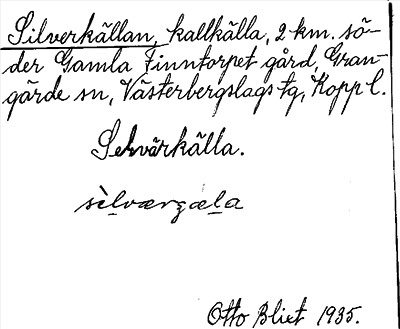 Silverkällan, kallkälla, 2 km. sö-
der Gamla Finntorpet gård, Gran-
gärde sn, Västerbergslags tg, Kopp l.
källa.
Otto Blixt 1935.